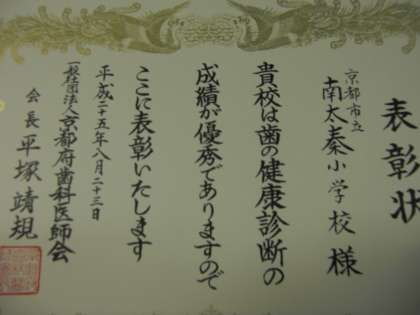 表彰状
京都市立
南太秦小学校様
貴校は歯の健康診断の
成績が優秀でありますので
ここに表彰いたします
平成二十五年八月二十三日
一般社団法人京都府歯科医師会
会長平塚靖規